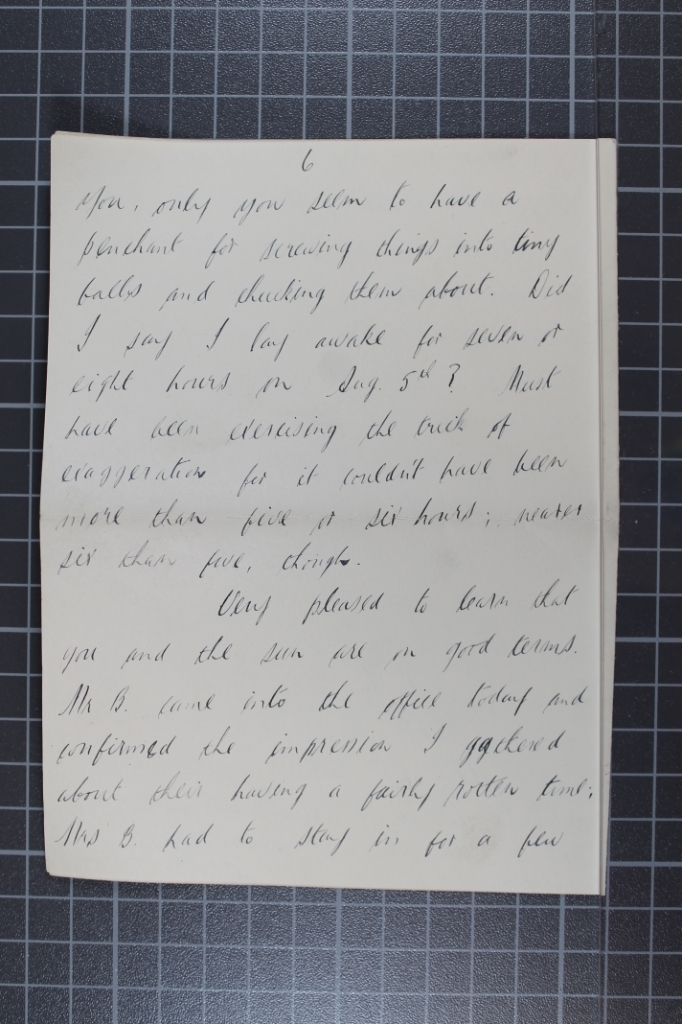 6
you, only you seem to have a
penchant for screwing things into tiny
balls and chucking them about. Did
I say I lay awake for seven or
eight hours on Aug. 5th? Must
have been exercising the trick of
exaggeration for it couldn't have been
more than five or six hours; nearer
six than five, though.
Very pleased to learn that
you and the sun are on good terms.
Mr B. came into the office today and
confirmed the impression I gathered
about their having a fairly rotten time;
Mrs B. had to stay in for a few